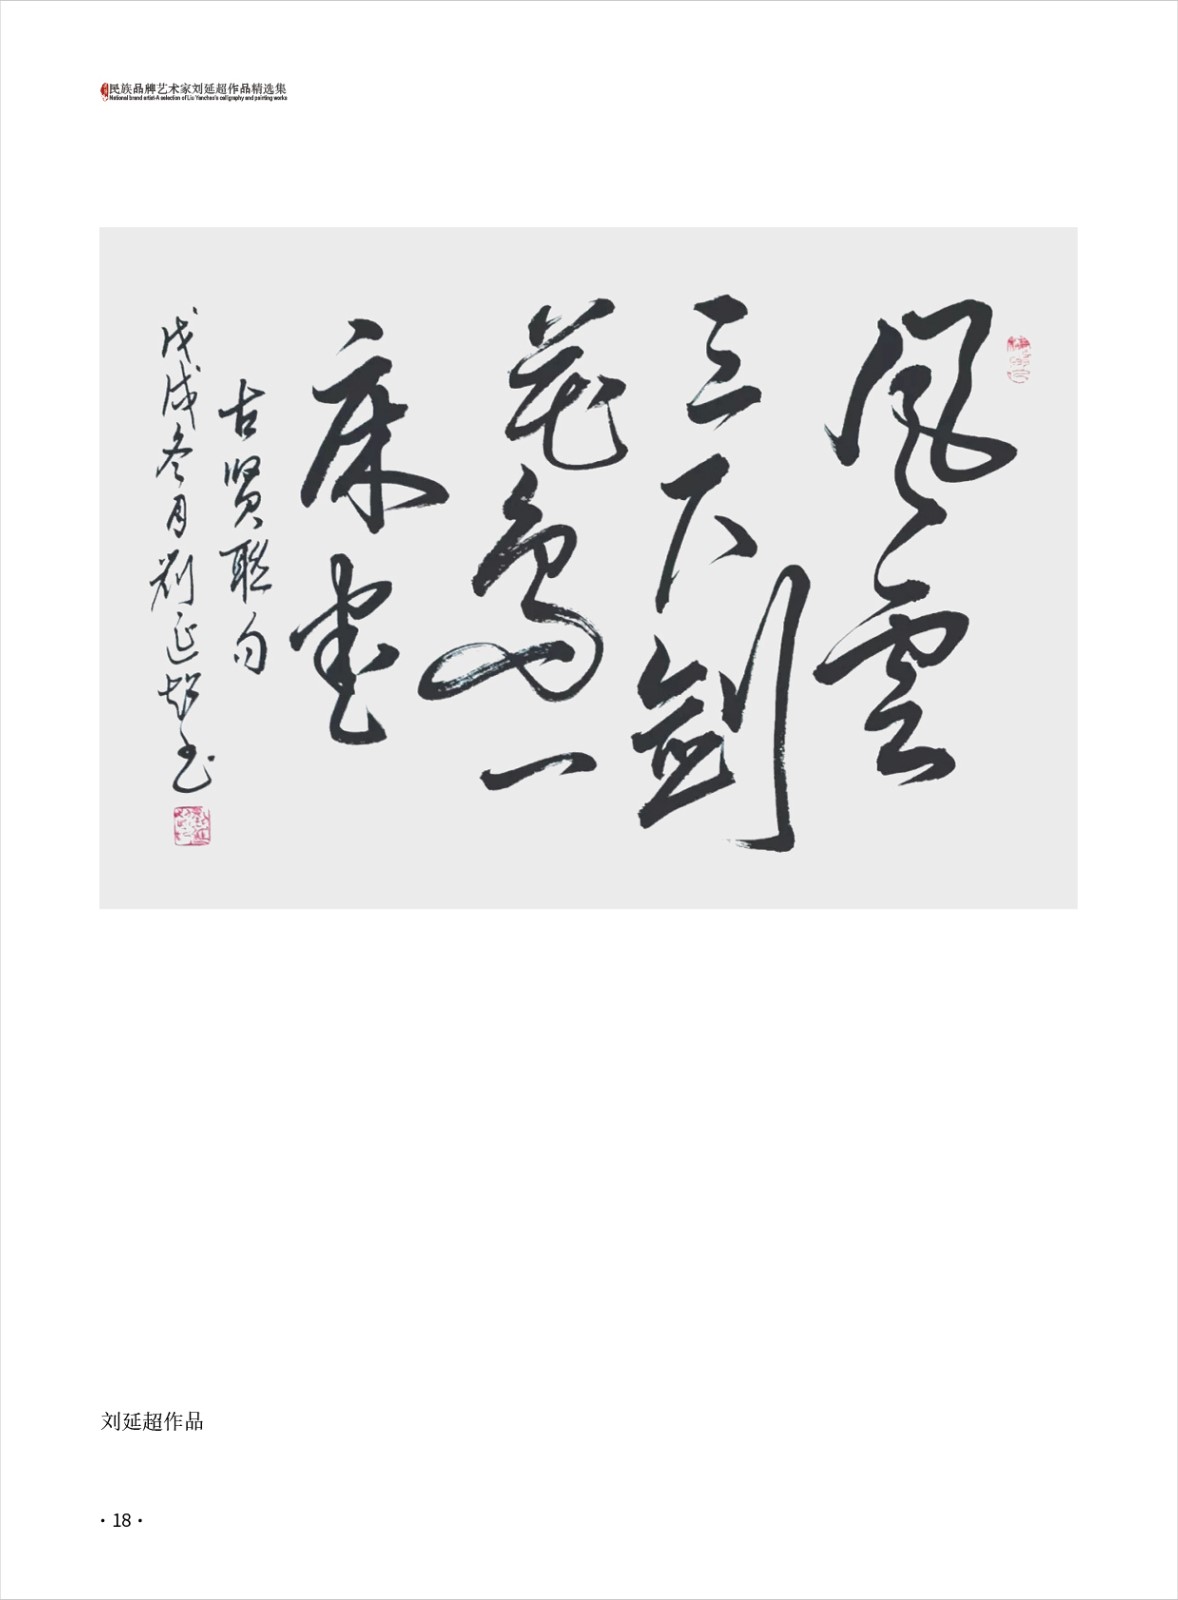 民族品牌艺术家刘延超作品精选集
National brand artist-A selection of Liu Yanchao's caligraphy and painting works
風雲
三尺劍
花鳥一
床書
古賢聯句
戊戌冬月劉延超書
刘延超作品
·18·